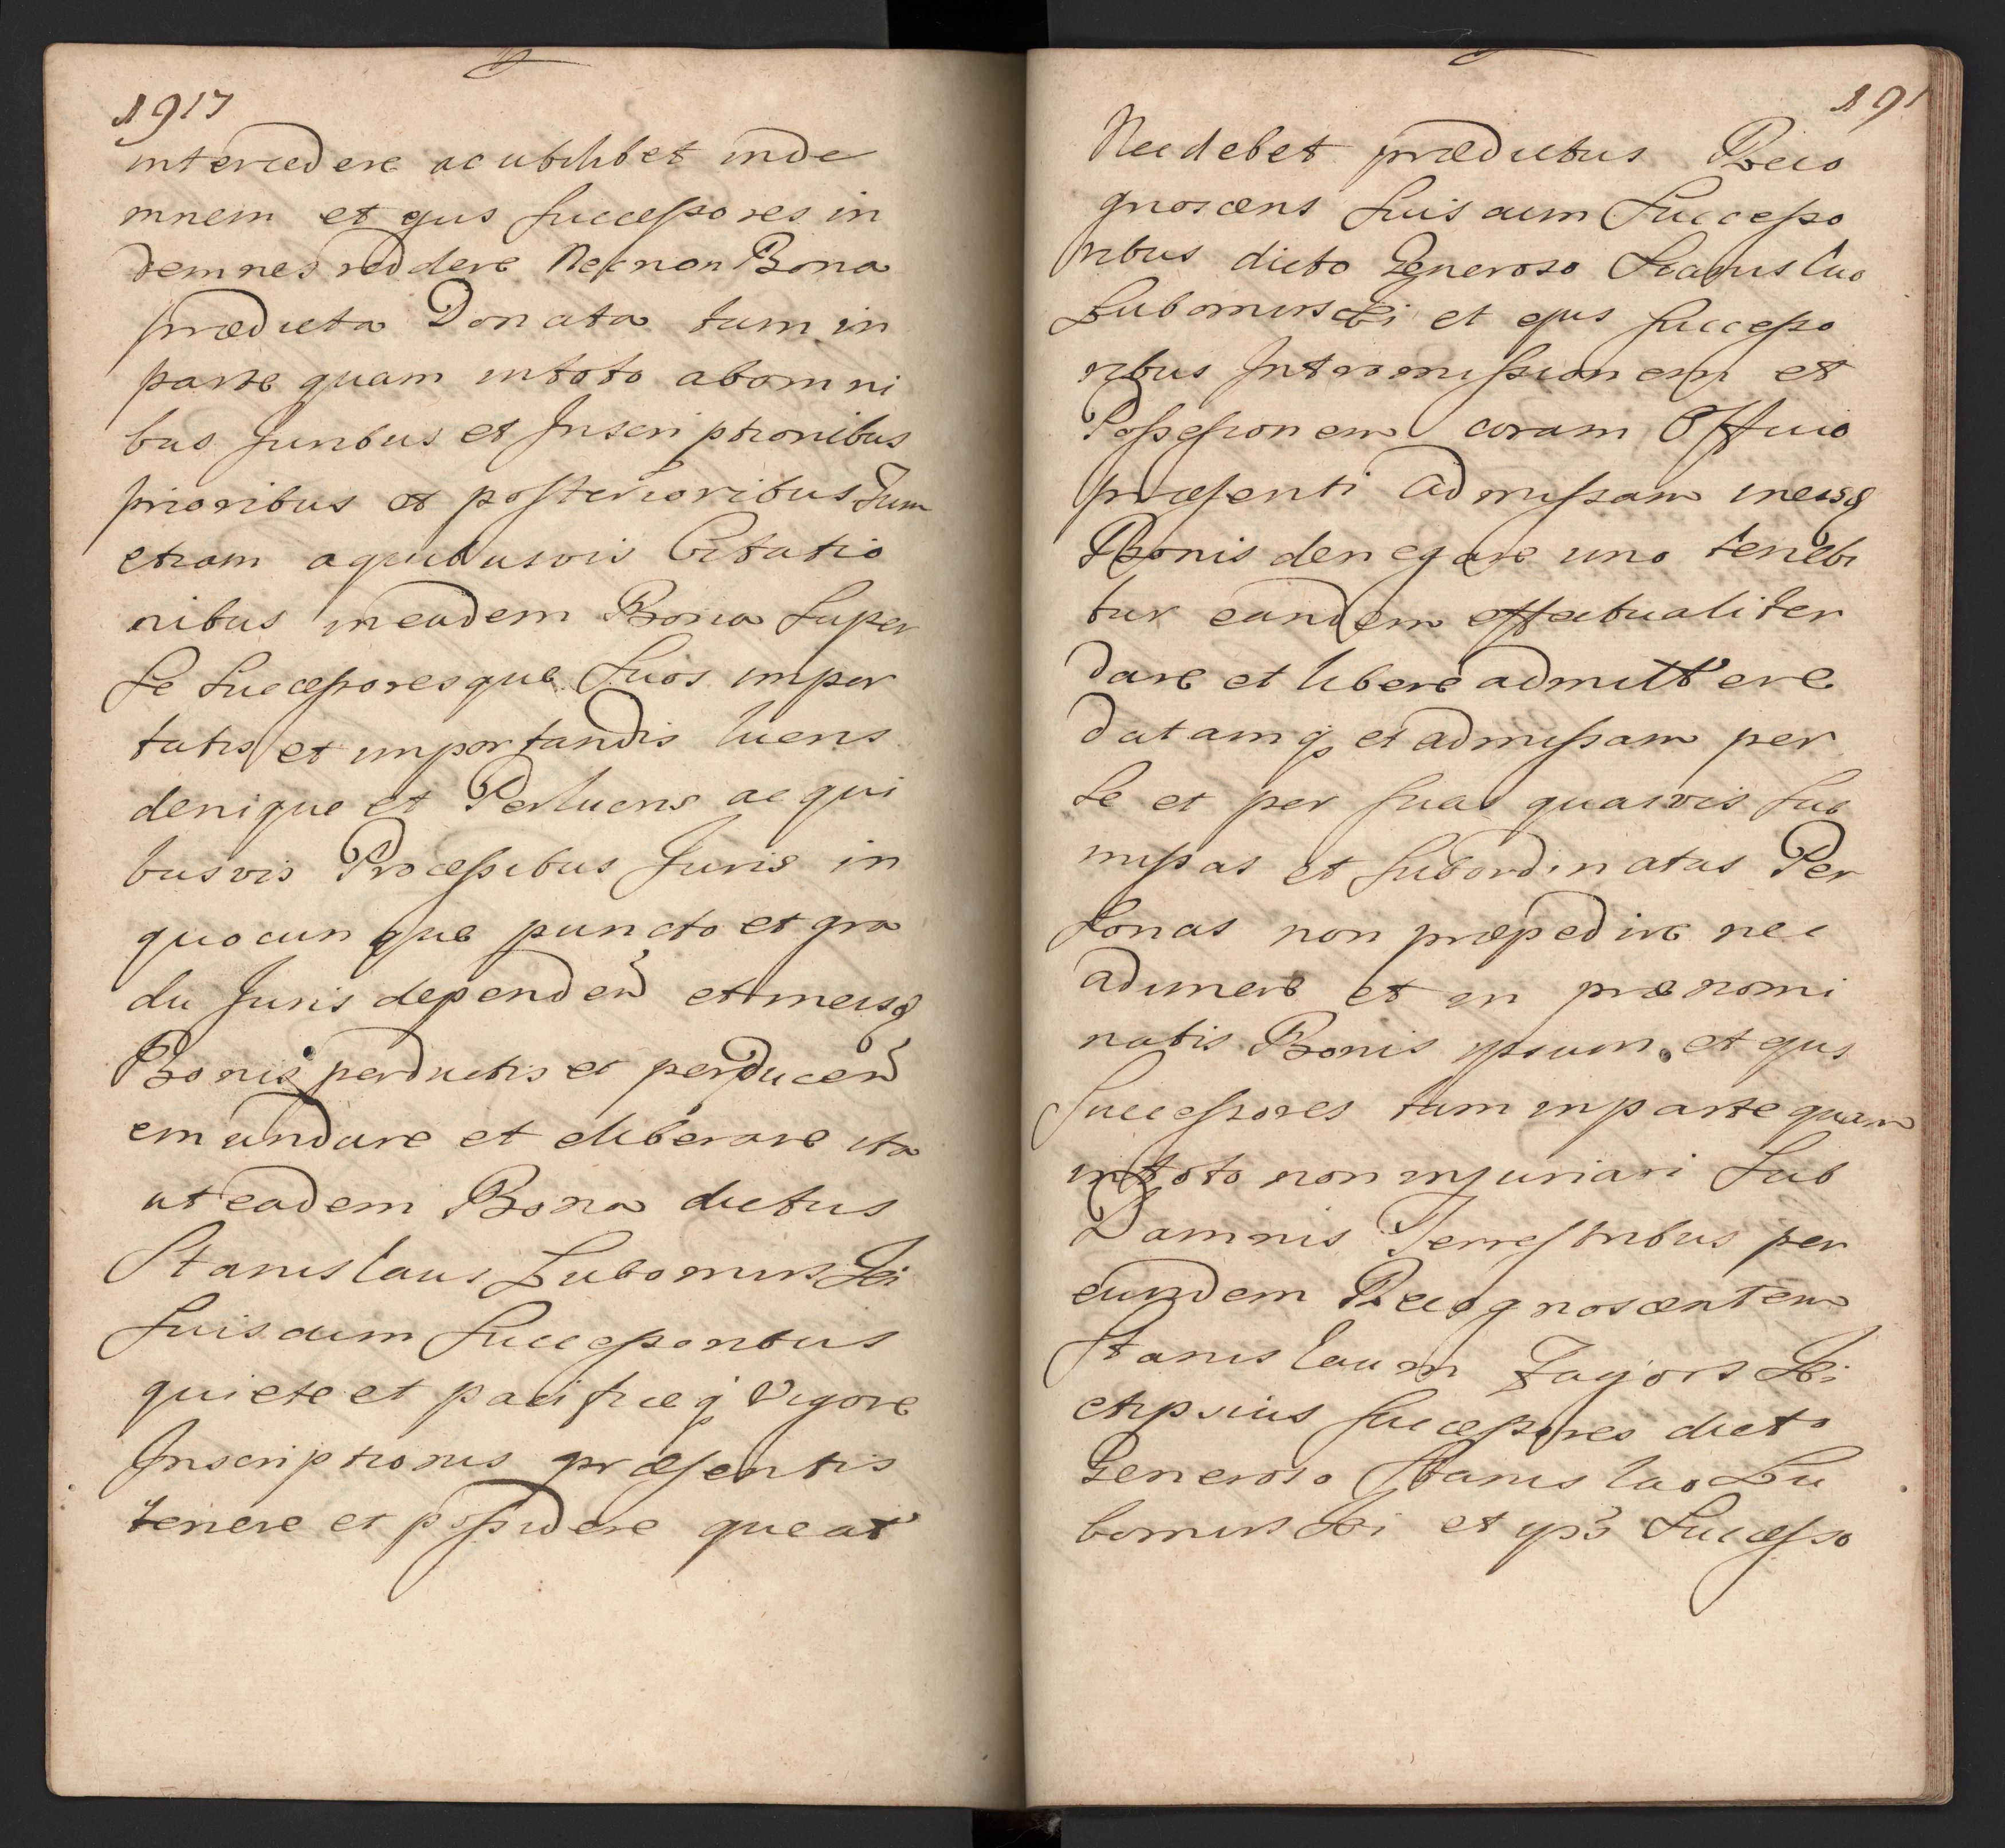 1917
intercedere ac ubilibet inde
mnem et ejus Successores in
demnes reddere Necnon Bona
prædicta Donata tam in
parte quam intoto abomni
bus Juribus et Inscriptionibus
prioribus et posterioribus Tum
etiam aquibusvis Citatio
nibus ineadem Bona Super
Se Successoresque Suos impor
tatis et importandis luens
denique et Perluens ac qui
busvis Processibus Juris in
quocunque puncto et gra
du Juris dependen et ineisq
Bonis perductis et perducen
emundare et eliberare ita
ut eadem Bona dictus
Stanislaus Lubomirski
Suis cum Successoribus
quiete et pacificeq Vigore
Inscriptionis præsentis
tenere et possidere queat
191
Nec debet prædictus Reco
gnoscens Suis cum Successo
ribus dicto Generoso Stanislao
Lubomirski et ejus Successo
ribus Intromissionem et
Possessionem coram Officio
præsenti admissam ineisq
Bonis denegare imo tenebi
tur eandem effectualiter
dare et libere admittere
datamq et admissam per
Se et per Suas quasvis Sub
missas et Subordinatas Per
sonas non præpedire nec
adimere et in prænomi
natis Bonis ipsum et ejus
Successores tam inparte quam
intoto non injuriari Sub
Damnis Terrestribus per
eundem Recognoscentem
Stanislaum Zagorski
etipsius Successores dicto
Generoso Stanislao Lu
bomirski et ips Successo